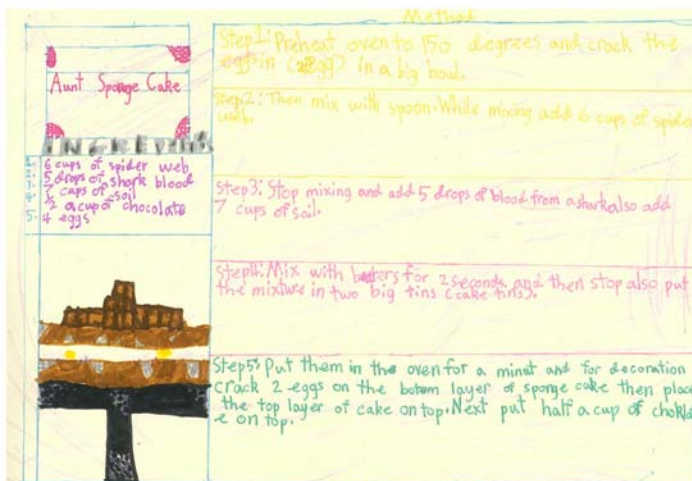 Aunt Sponge Cake
INGREDIENTS
1. 6 cups of spider web
2. 5 drops of shark blood
3. 7 cups of soil
4. ½ a cup of chocolate
5. 4 eggs
Method
Step1: Preheat oven to 150 degrees and crack the
eggs in (2 egg) in a big bowl.
Step2: Then mix with spoon. While mixing add 6 cups of spider
web.
Step3: Stop mixing and add 5 drops of blood from a shark also add
7 cups of soil.
Step4: Mix with beters for 2 seconds and then stop also put
the mixture in two big tins (cake tins).
Step5: Put them in the oven for a minut and for decoration
crack 2 eggs on the botom layer of sponge cake then place
the top layer of cake on top. Next put half a cup of choklat
e on top.